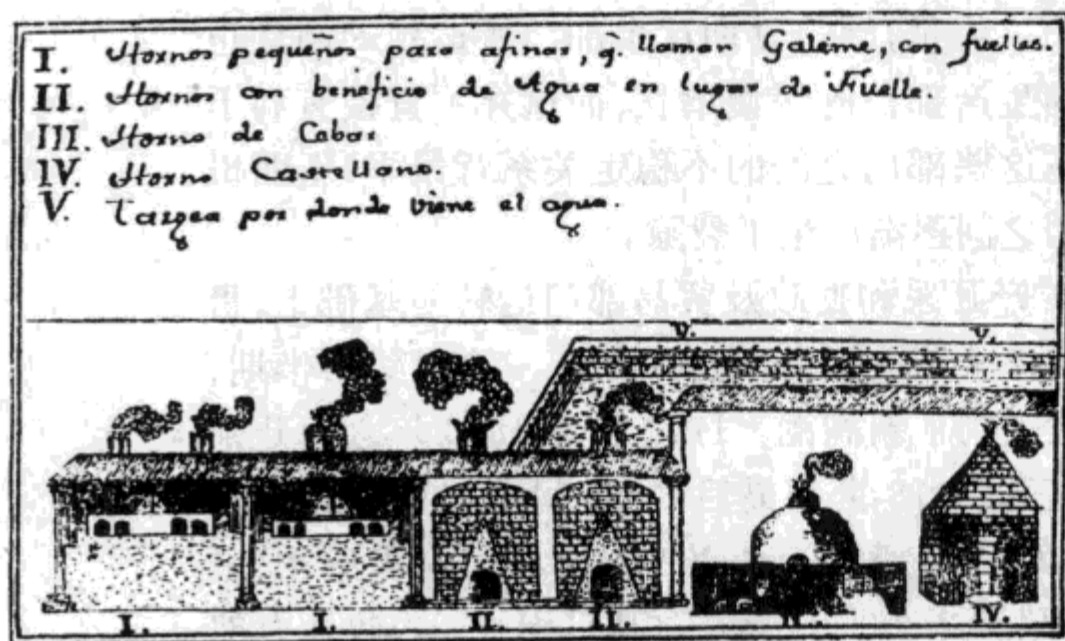 I. Hornos pequeños para afinar, q. llaman Galeme, con fuelles.
II. Hornos con beneficio de Agua en lugar de Fuelle.
III. Horno de Cobar
IV. Horno Castellano.
V. Targea por donde viene el agua.
V. V.
I. I. II. II. IV.